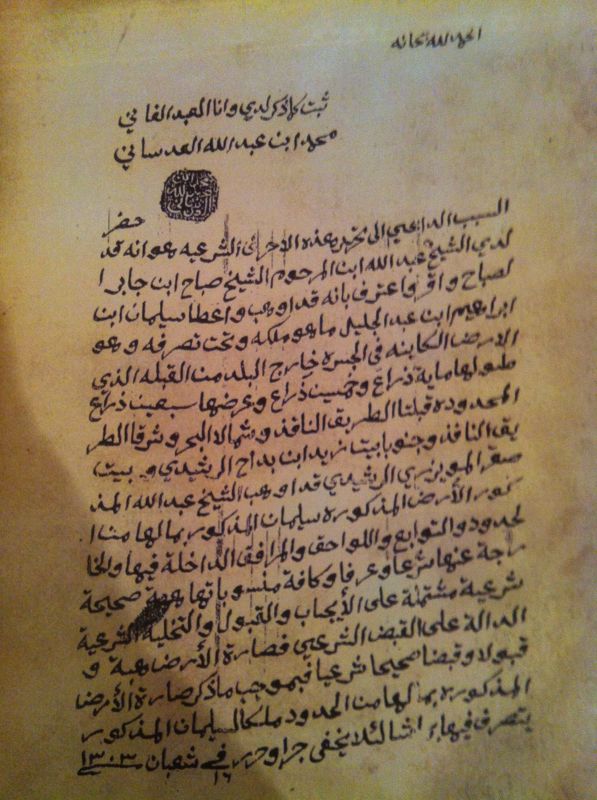 الحمد لله سبحانه
ثبت كما ذكر لدي وانا العبد الفاني
محمد ابن عبد الله العدساني
السبب الداعي الى تحرير هذه الاحرف الشرعيه هو انه قد حضر
لدي الشيخ عبد الله ابن المرحوم الشيخ صباح ابن جابر ا
لصباح واقر واعترف بانه قد اوهب واعطا سليمان ابن
ابراهيم ابن عبد الجليل ما هو ملكه وتحت تصرفه وهو
الارض الكاينه في الجسره خارج البلد من القبله الذي
طولها ماية ذراع وخمسين ذراع وعرضها سبعين ذراع
المحدوده قبلتا الطريق النافذ وشمالا البحر وشرقا الطر
يق النافذ وجنوبا بيت زيد ابن بداح الرشيدي وبيت
صقر المويزري الرشيدي قد اوهب الشيخ عبد الله المذ
كور الأرض المذكوره سليمان المذكور بمالها من ا
لحدود والتوابع واللواحق والمرافق الداخلة فيها والخا
رجة عنها شرعا وعرفا وكافة منسوباتها هبة صحيحة
شرعية مشتملة على الأيجاب والقبول والتخلية الشرعية
الدالة على القبض الشرعي فصارة الأرض هبة و
قبولا وقبضا صحيحا شرعيا فبموجب ما ذكر صارة الأرض
المذكوره بمالها من الحدود ملكا لسليمان المذكور
يتصرف فيها بما شا لئلا يخفى جرا وحرر في ١٦ شعبان ١٣٠٣